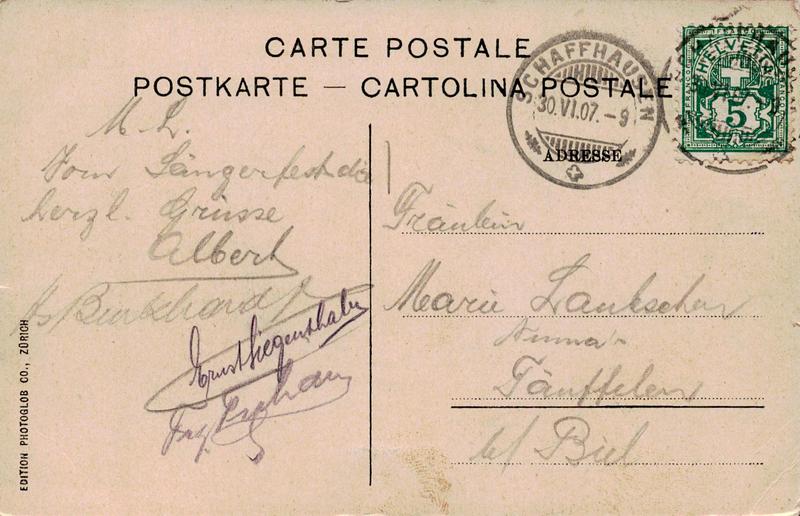 CARTE POSTALE
POSTKARTE — CARTOLINA POSTALE
SCHAFFHAUSEN
30.VI.07.-9
HELVETIA
5
ADRESSE
M. L.
Vom Sängerfest die
herzl. Grüsse
Albert
Burkhardt
Ernst Siegenthaler
Fräulein
Marie
Täuffelen
b/ Biel
EDITION PHOTOGLOB CO., ZÜRICH